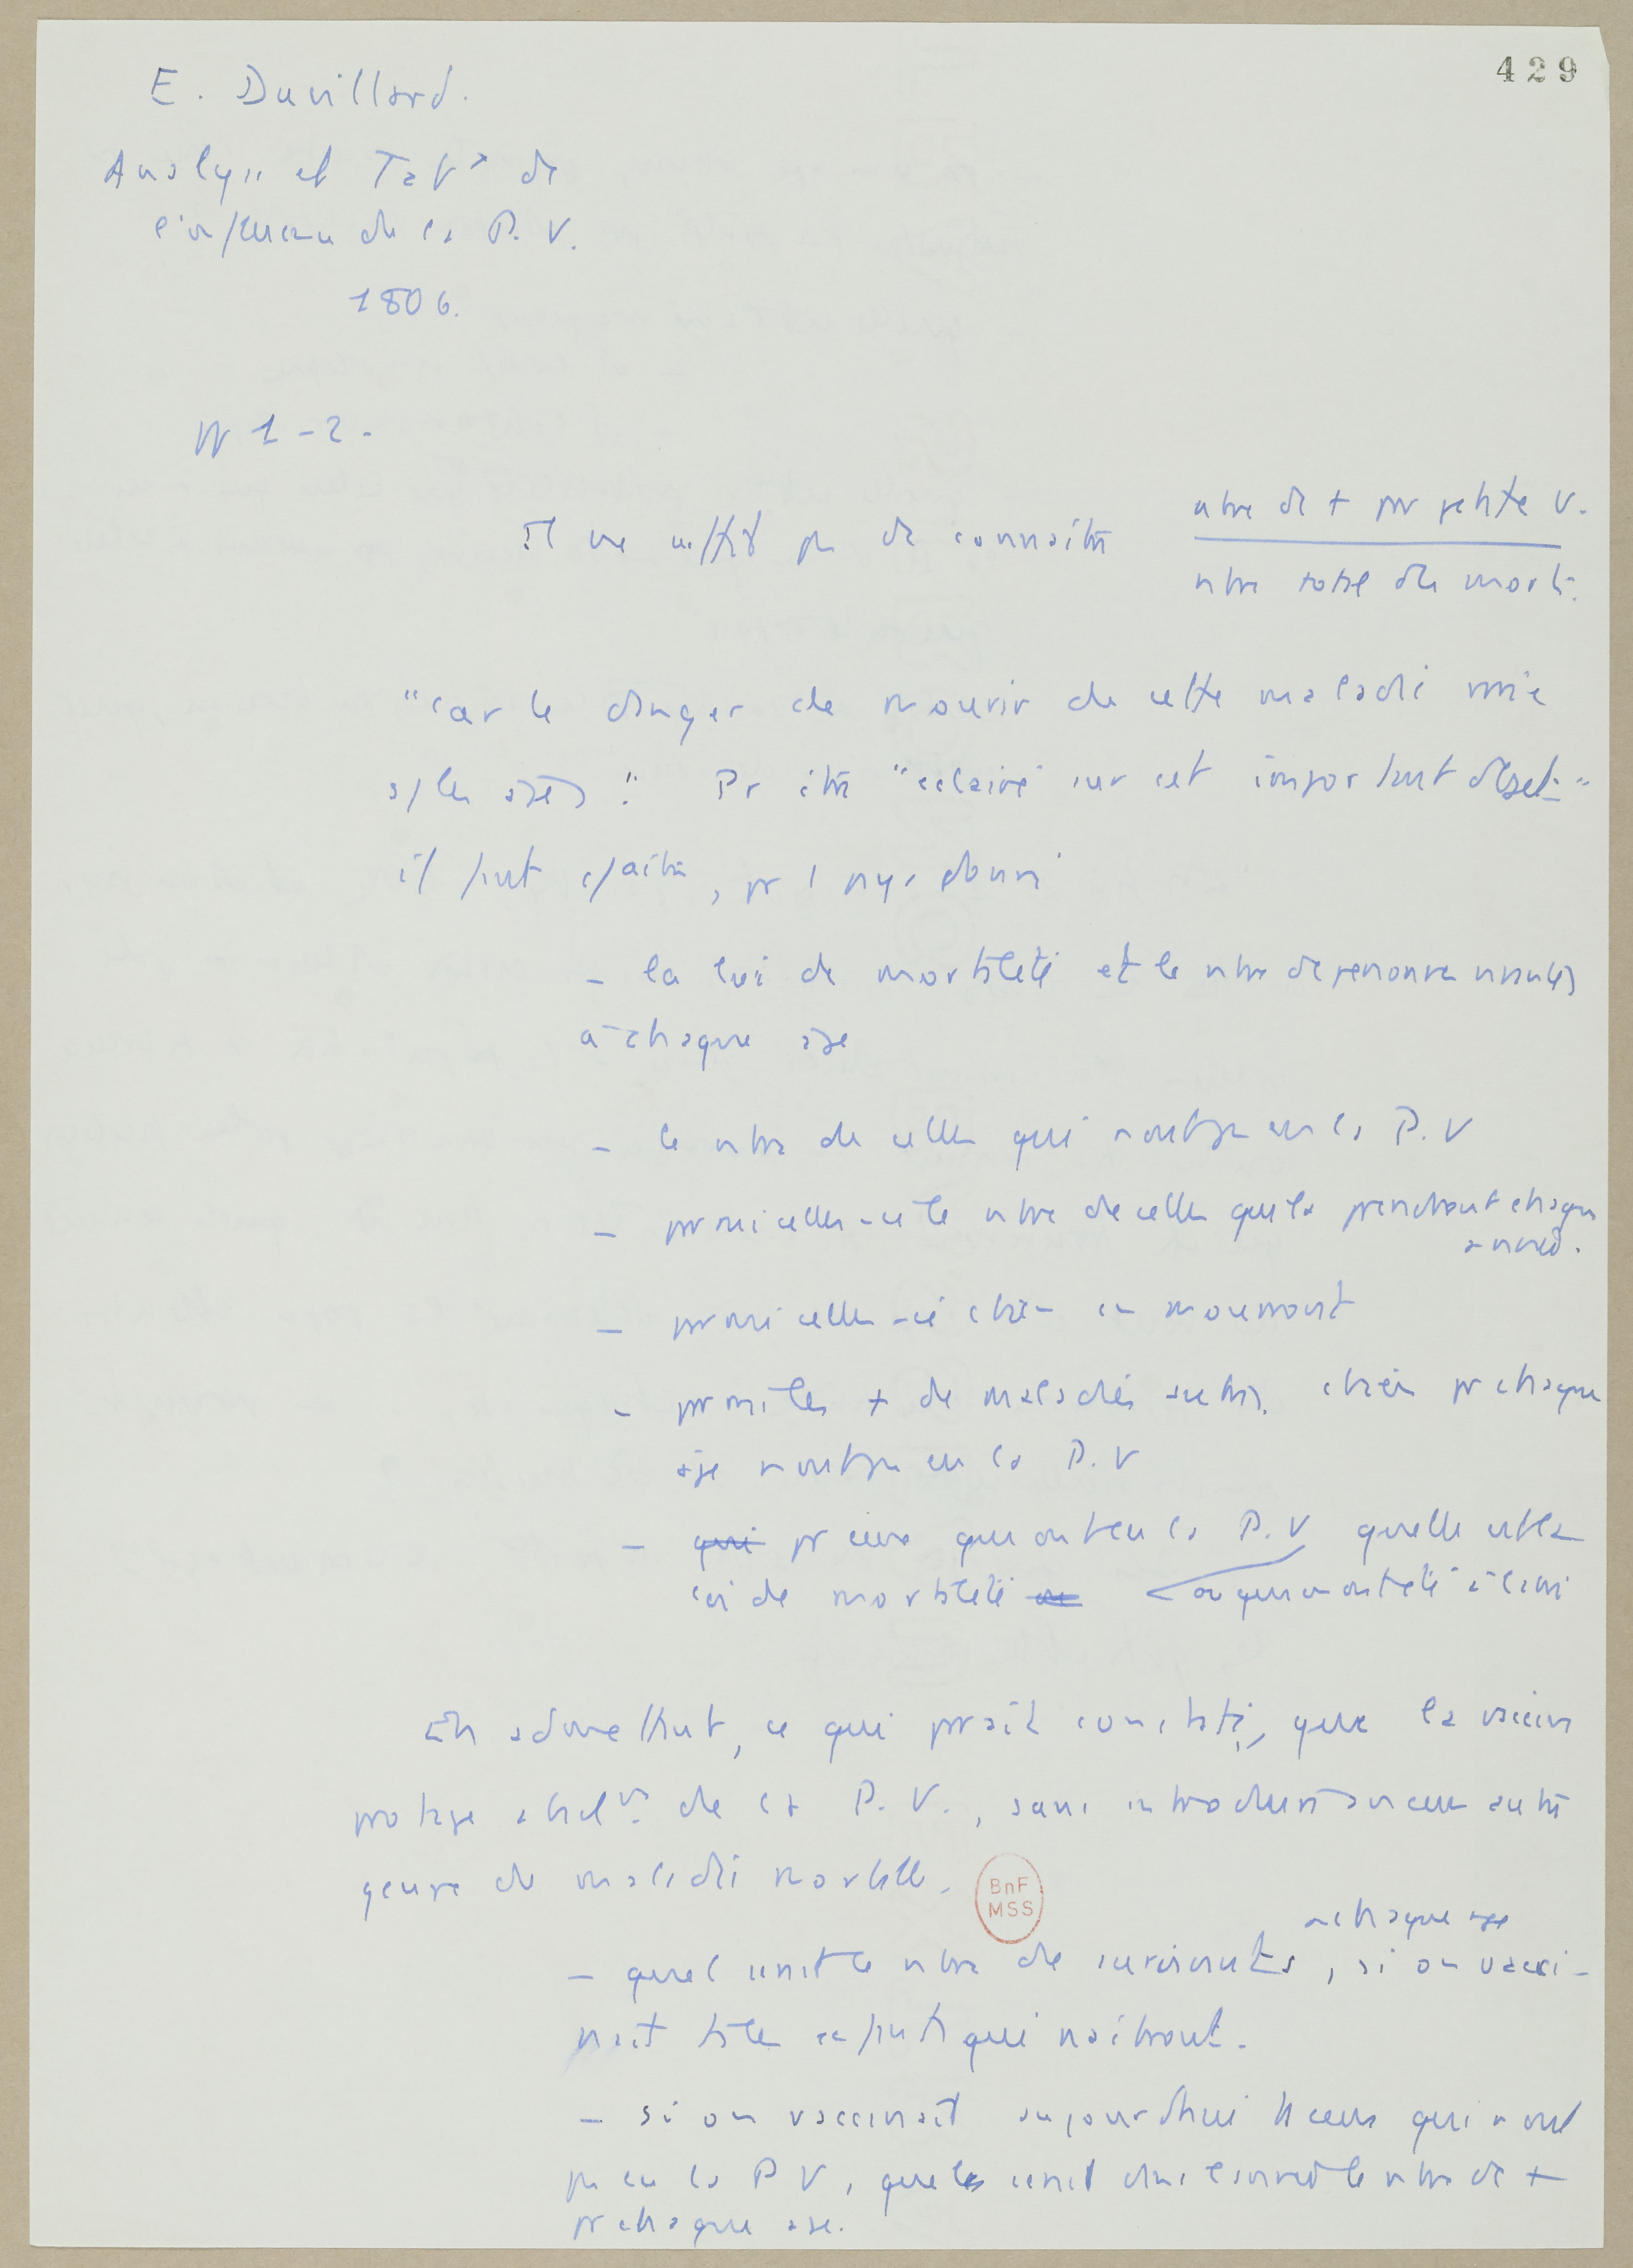 429
E. Duvillard.
Analyse et Tabx de
l'influence de la P. V.
1806.
pp 1-2.
Il ne suffit pas de connaître
nbre de + par petite V.
nbre total des morts.
"car le danger de mourir de cette maladie varie
s/ les âges". Pr être "éclairé sur cet important objet"
il faut connaître, pr 1 pays donné
- la loi de mortalité et le nbre de personnes vivantes
à chaque âge
- le nbre de celles qui n'ont pas eu la P. V
- parmi celles-ci le nbre de celles qui la prendront chaque
année.
- parmi celles-ci cbien en mourront
- parmi les + de maladies autres, cbien pr chaque
âge n'ont pas eu la P. V
- qui pr ceux qui ont eu la P. V quelle est la
loi de mortalité ou qui n'ont été à l'abri
En admettant, ce qui paraît constaté, que la vaccine
protège absolt de la P. V., sans introduire aucun autre
genre de maladie mortelle.
BnF
MSS
à chaque âge
- quel serait le nbre de survivants, si on vacci-
nait ts les enfants qui naîtront.
- si on vaccinait aujourd'hui ts ceux qui n'ont
pas eu la P V, quel serait dans l'année le nbre de +
pr chaque âge.